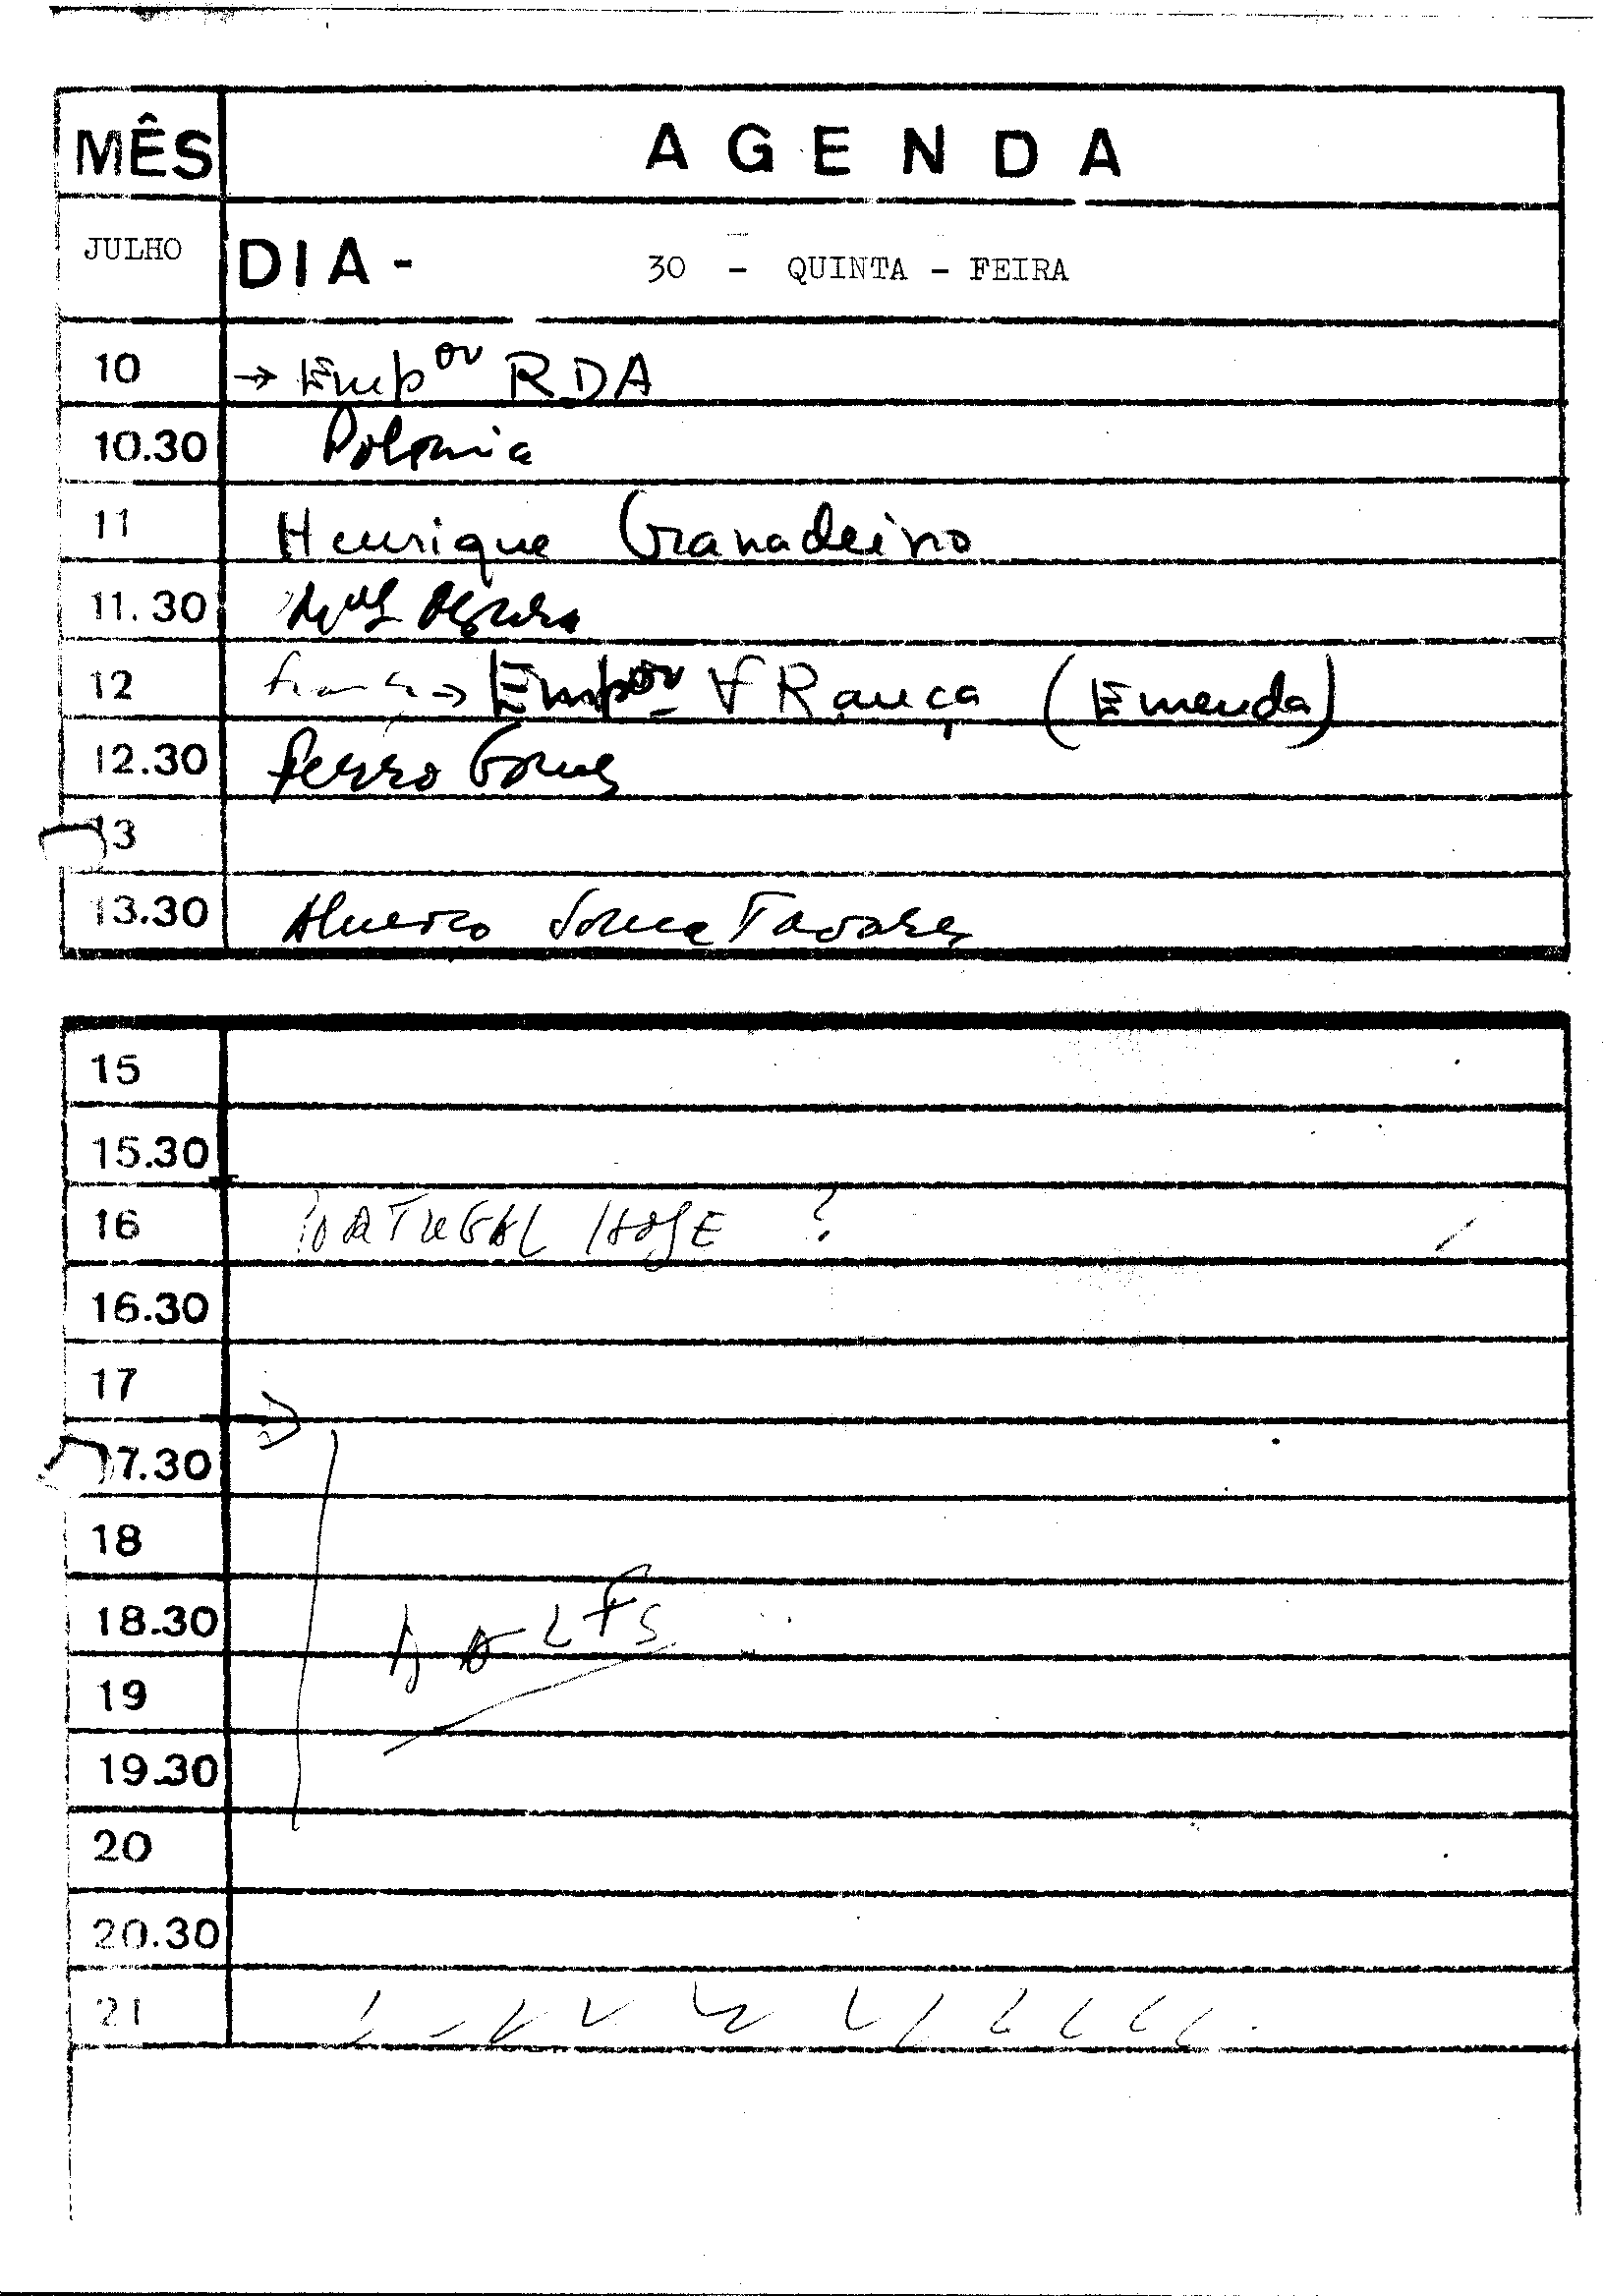 MÊS AGENDA
JULHO DIA- 30 - QUINTA - FEIRA
10 → Empor RDA
10.30 Polonia
11 Henrique Granadeiro
11.30
12 → Empor FRança (Emenda)
12.30 Gomes
13
13.30 Sousa Tavares
15
15.30
16 PORTUGAL HOJE ?
16.30
17
17.30
18
18.30
19
19.30
20
20.30
21